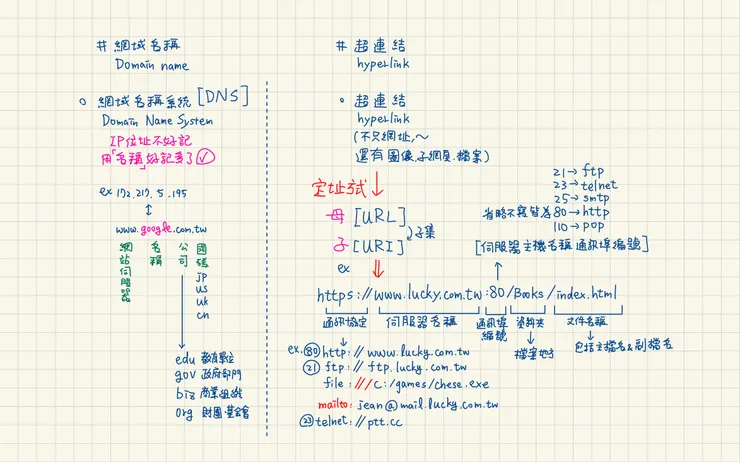 # 網域名稱
Domain name
網域名稱系統 [DNS]
Domain Name System
IP位址不好記
用「名稱」好記多了
ex 172.217.5.195
www.google.com.tw
網站伺服器
名稱
公司
國碼
jp
us
uk
cn
edu 教育單位
gov 政府部門
biz 商業組織
org 財團.基金會
# 超連結
hyperlink
超連結
hyperlink
(不只網址,~
還有圖像.子網頁.檔案)
定址試
母 [URL]
子 [URI]
子集
21→ftp
23→telnet
25→smtp
省略不寫皆為 80→http
110→pop
[伺服器主機名稱通訊埠編號]
ex
https://www.lucky.com.tw:80/Books/index.html
通訊協定
伺服器名稱
通訊埠編號
資料夾
文件名稱
檔案地
包括主檔名&副檔名
ex. 80 http://www.lucky.com.tw
21 ftp://ftp.lucky.com.tw
file:///c:/games/chese.exe
mailto: jean@mail.lucky.com.tw
23 telnet://ptt.cc